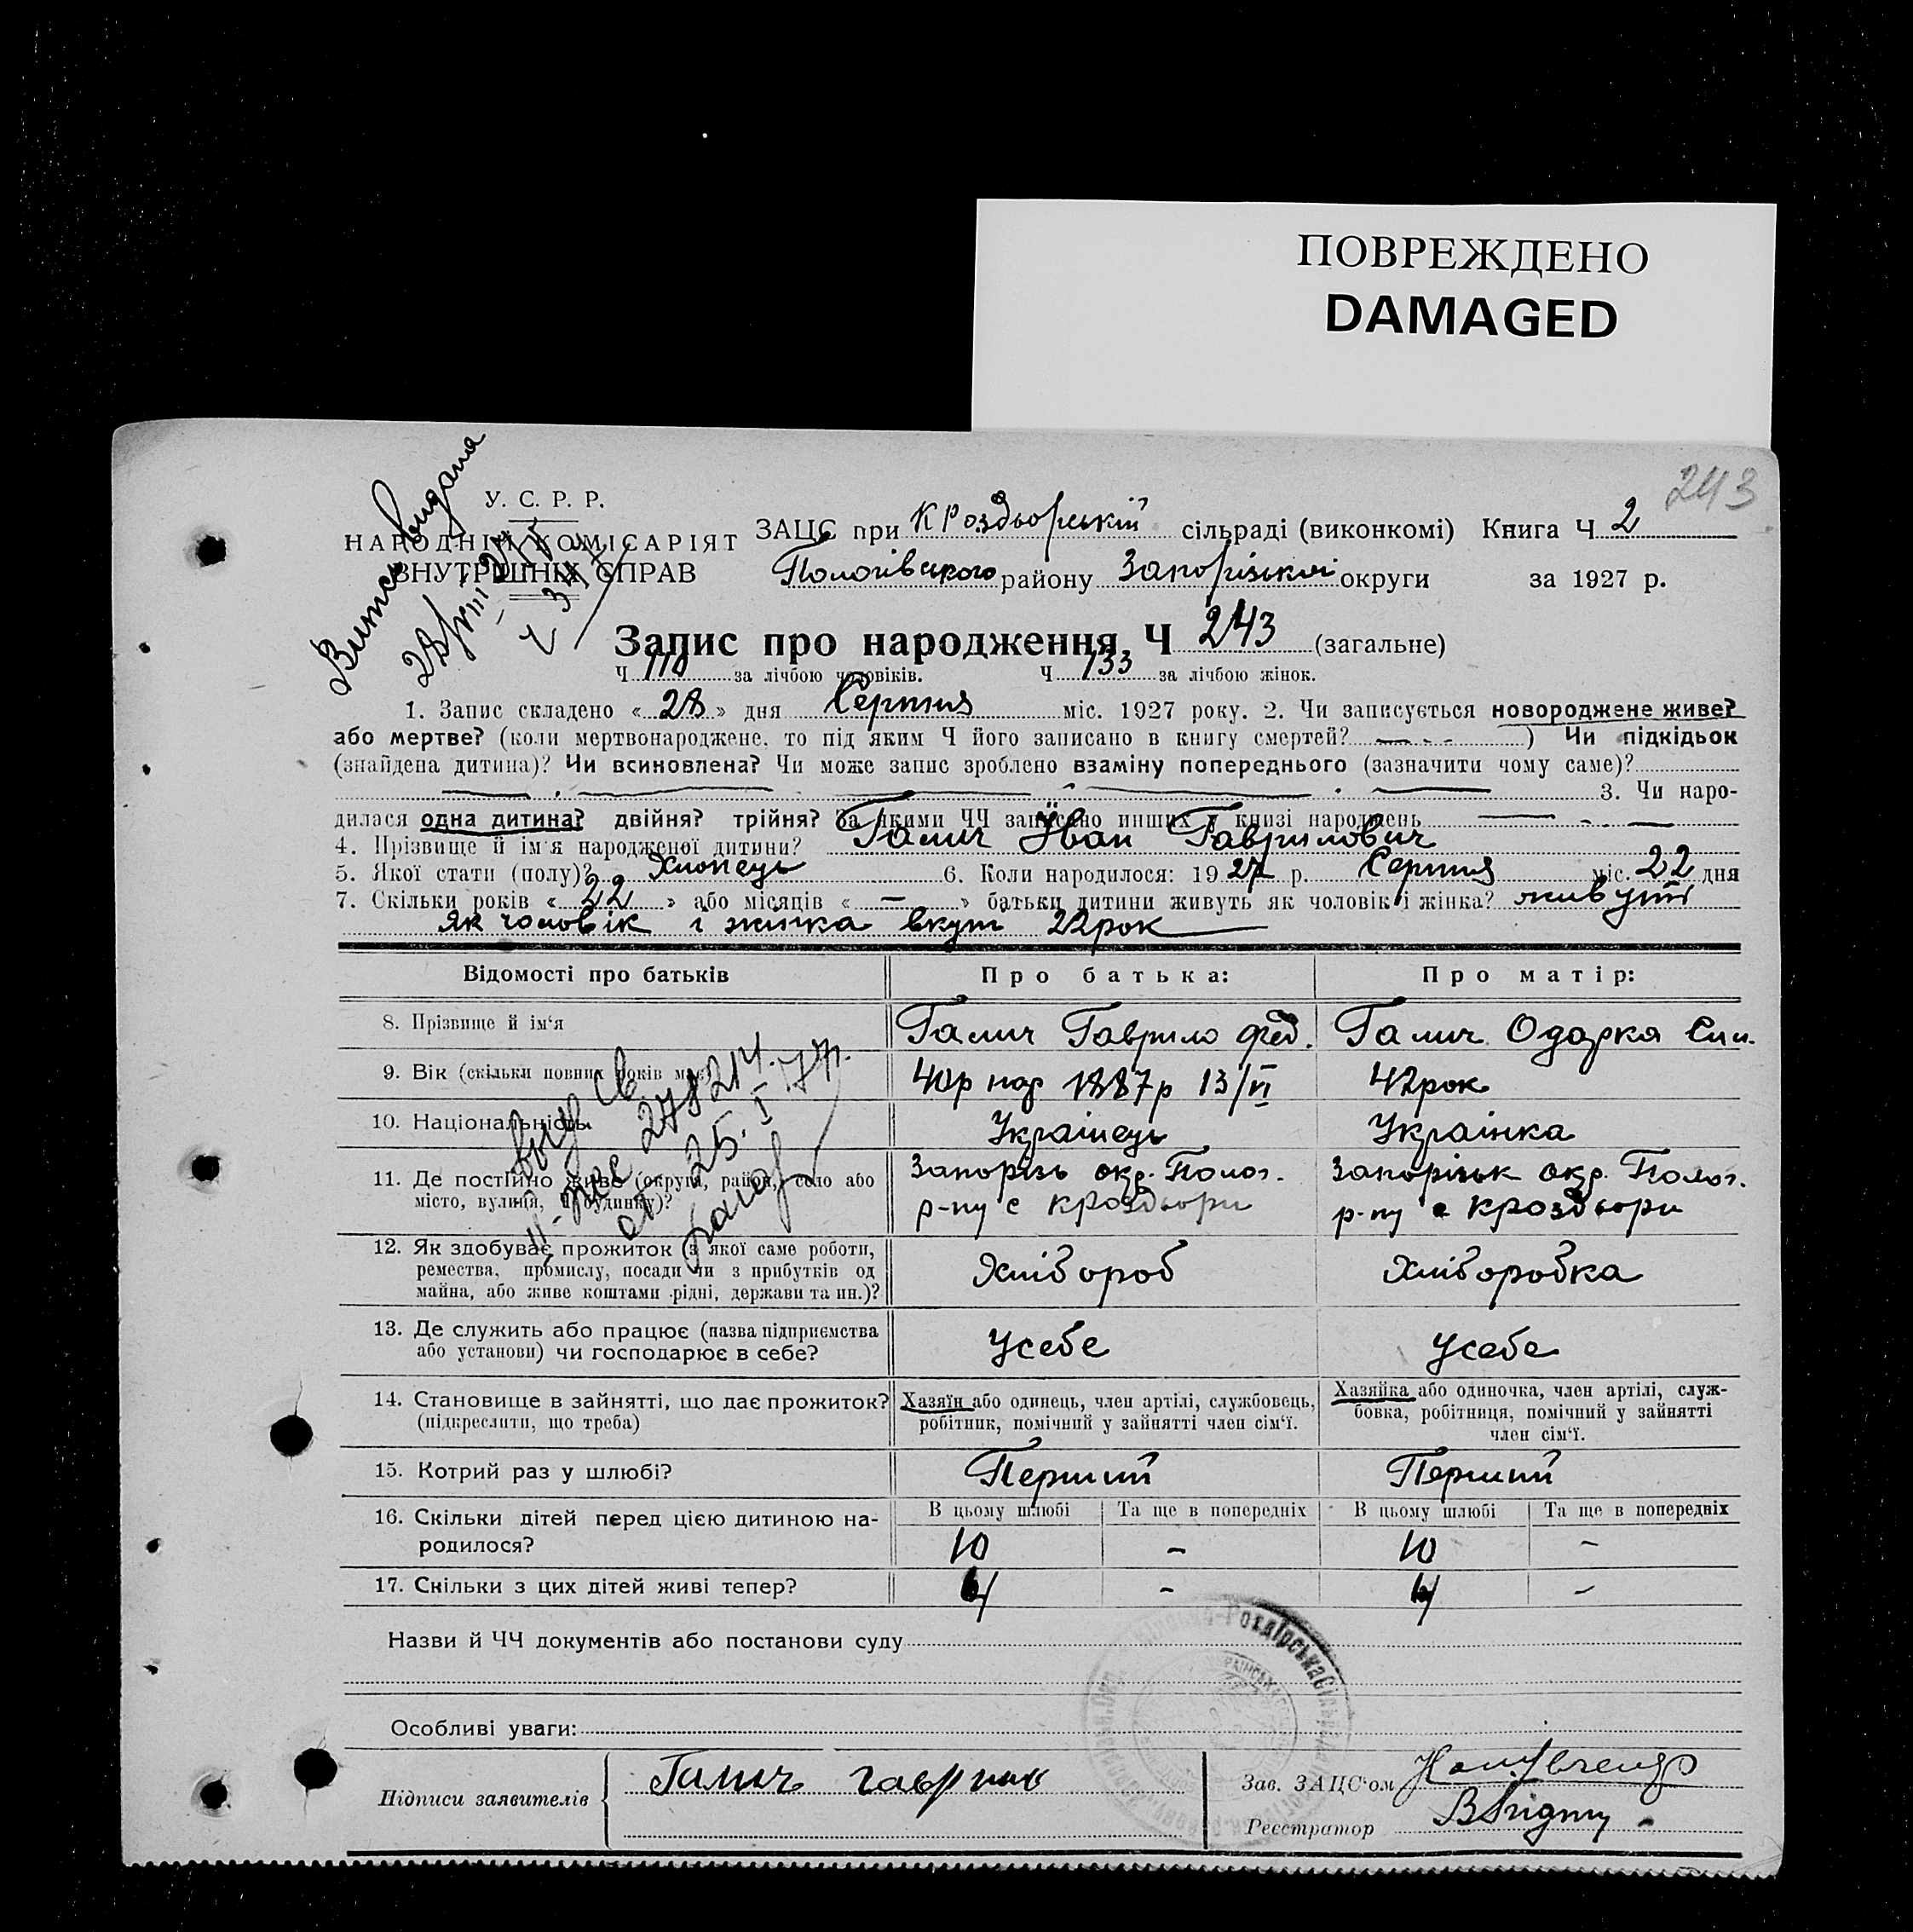 ПОВРЕЖДЕНО
DAMAGED
243
Витяг видана
У. С. Р. Р.
НАРОДНІЙ КОМІСАРІЯТ
ВНУТРІШНІХ СПРАВ
ЗАЦС при КРоздьорській сільраді (виконкомі) Книга Ч 2
Пологівського району Запорізької округи за 1927 р.
Запис про народження Ч 243 (загальне)
Ч 110 за лічбою чоловіків. Ч 133 за лічбою жінок.
1. Запис складено « 28 » дня Серпня міс. 1927 року. 2. Чи записується новороджене живе?
або мертве? (коли мертвонароджене, то під яким Ч його записано в книгу смертей? — - - ) Чи підкідьок
(знайдена дитина)? Чи всиновлена? Чи може запис зроблено взаміну попереднього (зазначити чому саме)?
3. Чи наро-
дилася одна дитина? двійня? трійня? За якими ЧЧ записано инших у книзі народжень — - —
4. Прізвище й ім'я народженої дитини? Галич Йван Гаврилович
5. Якої стати (полу)? Хлопець 6. Коли народилося: 1927 р. Серпня міс. 22 дня
7. Скільки років « 22 » або місяців « — » батьки дитини живуть як чоловік і жінка? живуть
як чоловік і жінка вкупі 22 рок
Відомості про батьків Про батька: Про матір:
8. Прізвище й ім'я Галич Гаврило Фед. Галич Одарка
9. Вік (скільки повних років має) 40р нар 1887р 13/VI 42 рок
10. Національність Українець Українка
11. Де постійно живе (округа, район, село або Запорізь окр. Полог. Запорізьк окр. Полог.
місто, вулиця, Ч будинку)? р-ну с Кроздьори р-ну с Кроздьори
12. Як здобуває прожиток (з якої саме роботи,
ремества, промислу, посади чи з прибутків од Хлібороб Хліборобка
майна, або живе коштами рідні, держави та ин.)?
13. Де служить або працює (назва підприємства
або установи) чи господарює в себе? Усебе Усебе
14. Становище в зайнятті, що дає прожиток? Хазяїн або одинець, член артілі, службовець, Хазяйка або одиночка, член артілі, служ-
(підкреслити, що треба) робітник, помічний у зайнятті член сім'ї. бовка, робітниця, помічний у зайнятті
член сім'ї.
15. Котрий раз у шлюбі? Перший Перший
16. Скільки дітей перед цією дитиною на- В цьому шлюбі Та ще в попередніх В цьому шлюбі Та ще в попередніх
родилося? 10 - 10 -
17. Скільки з цих дітей живі тепер? 4 - 4 -
Назви й ЧЧ документів або постанови суду
Особливі уваги:
Підписи заявителів Галич Гаврило Зав. ЗАЦС'ом
Реєстратор